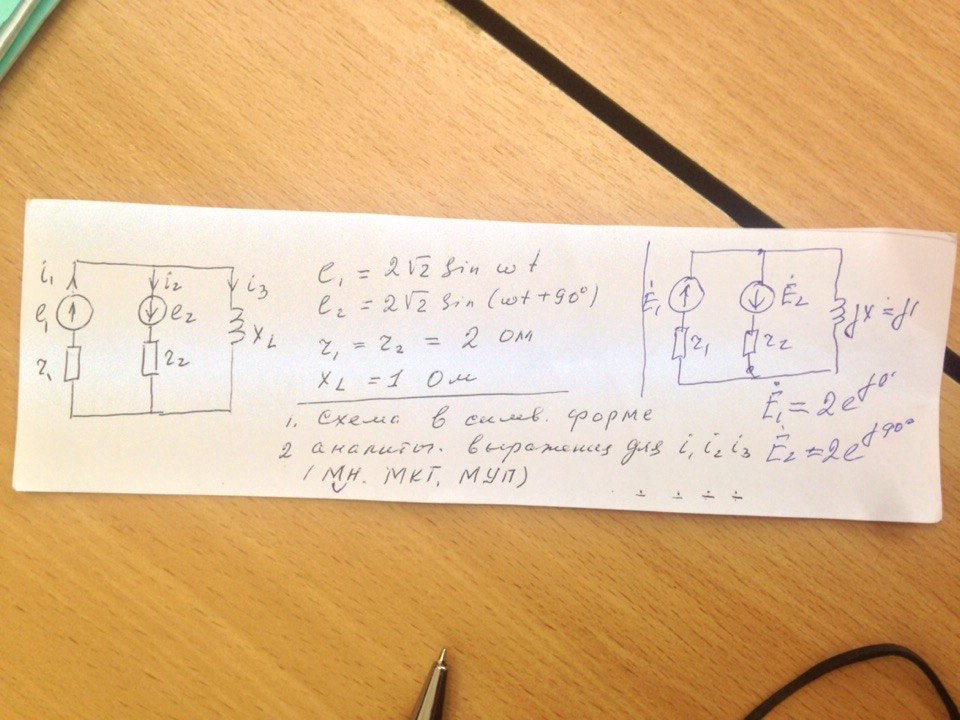 i₁ i₂ i₃
e₁ e₂ x_L
r₁ r₂
e₁ = 2√2 sin ωt
e₂ = 2√2 sin (ωt + 90°)
r₁ = r₂ = 2 ом
x_L = 1 Ом
1. схема в симв. форме
2 аналит. выражения для i₁ i₂ i₃
(МН. МКТ, МУП)
Ė₁ Ė₂
r₁ r₂
Ė₁ = 2e^j0°
Ė₂ = 2e^j90°